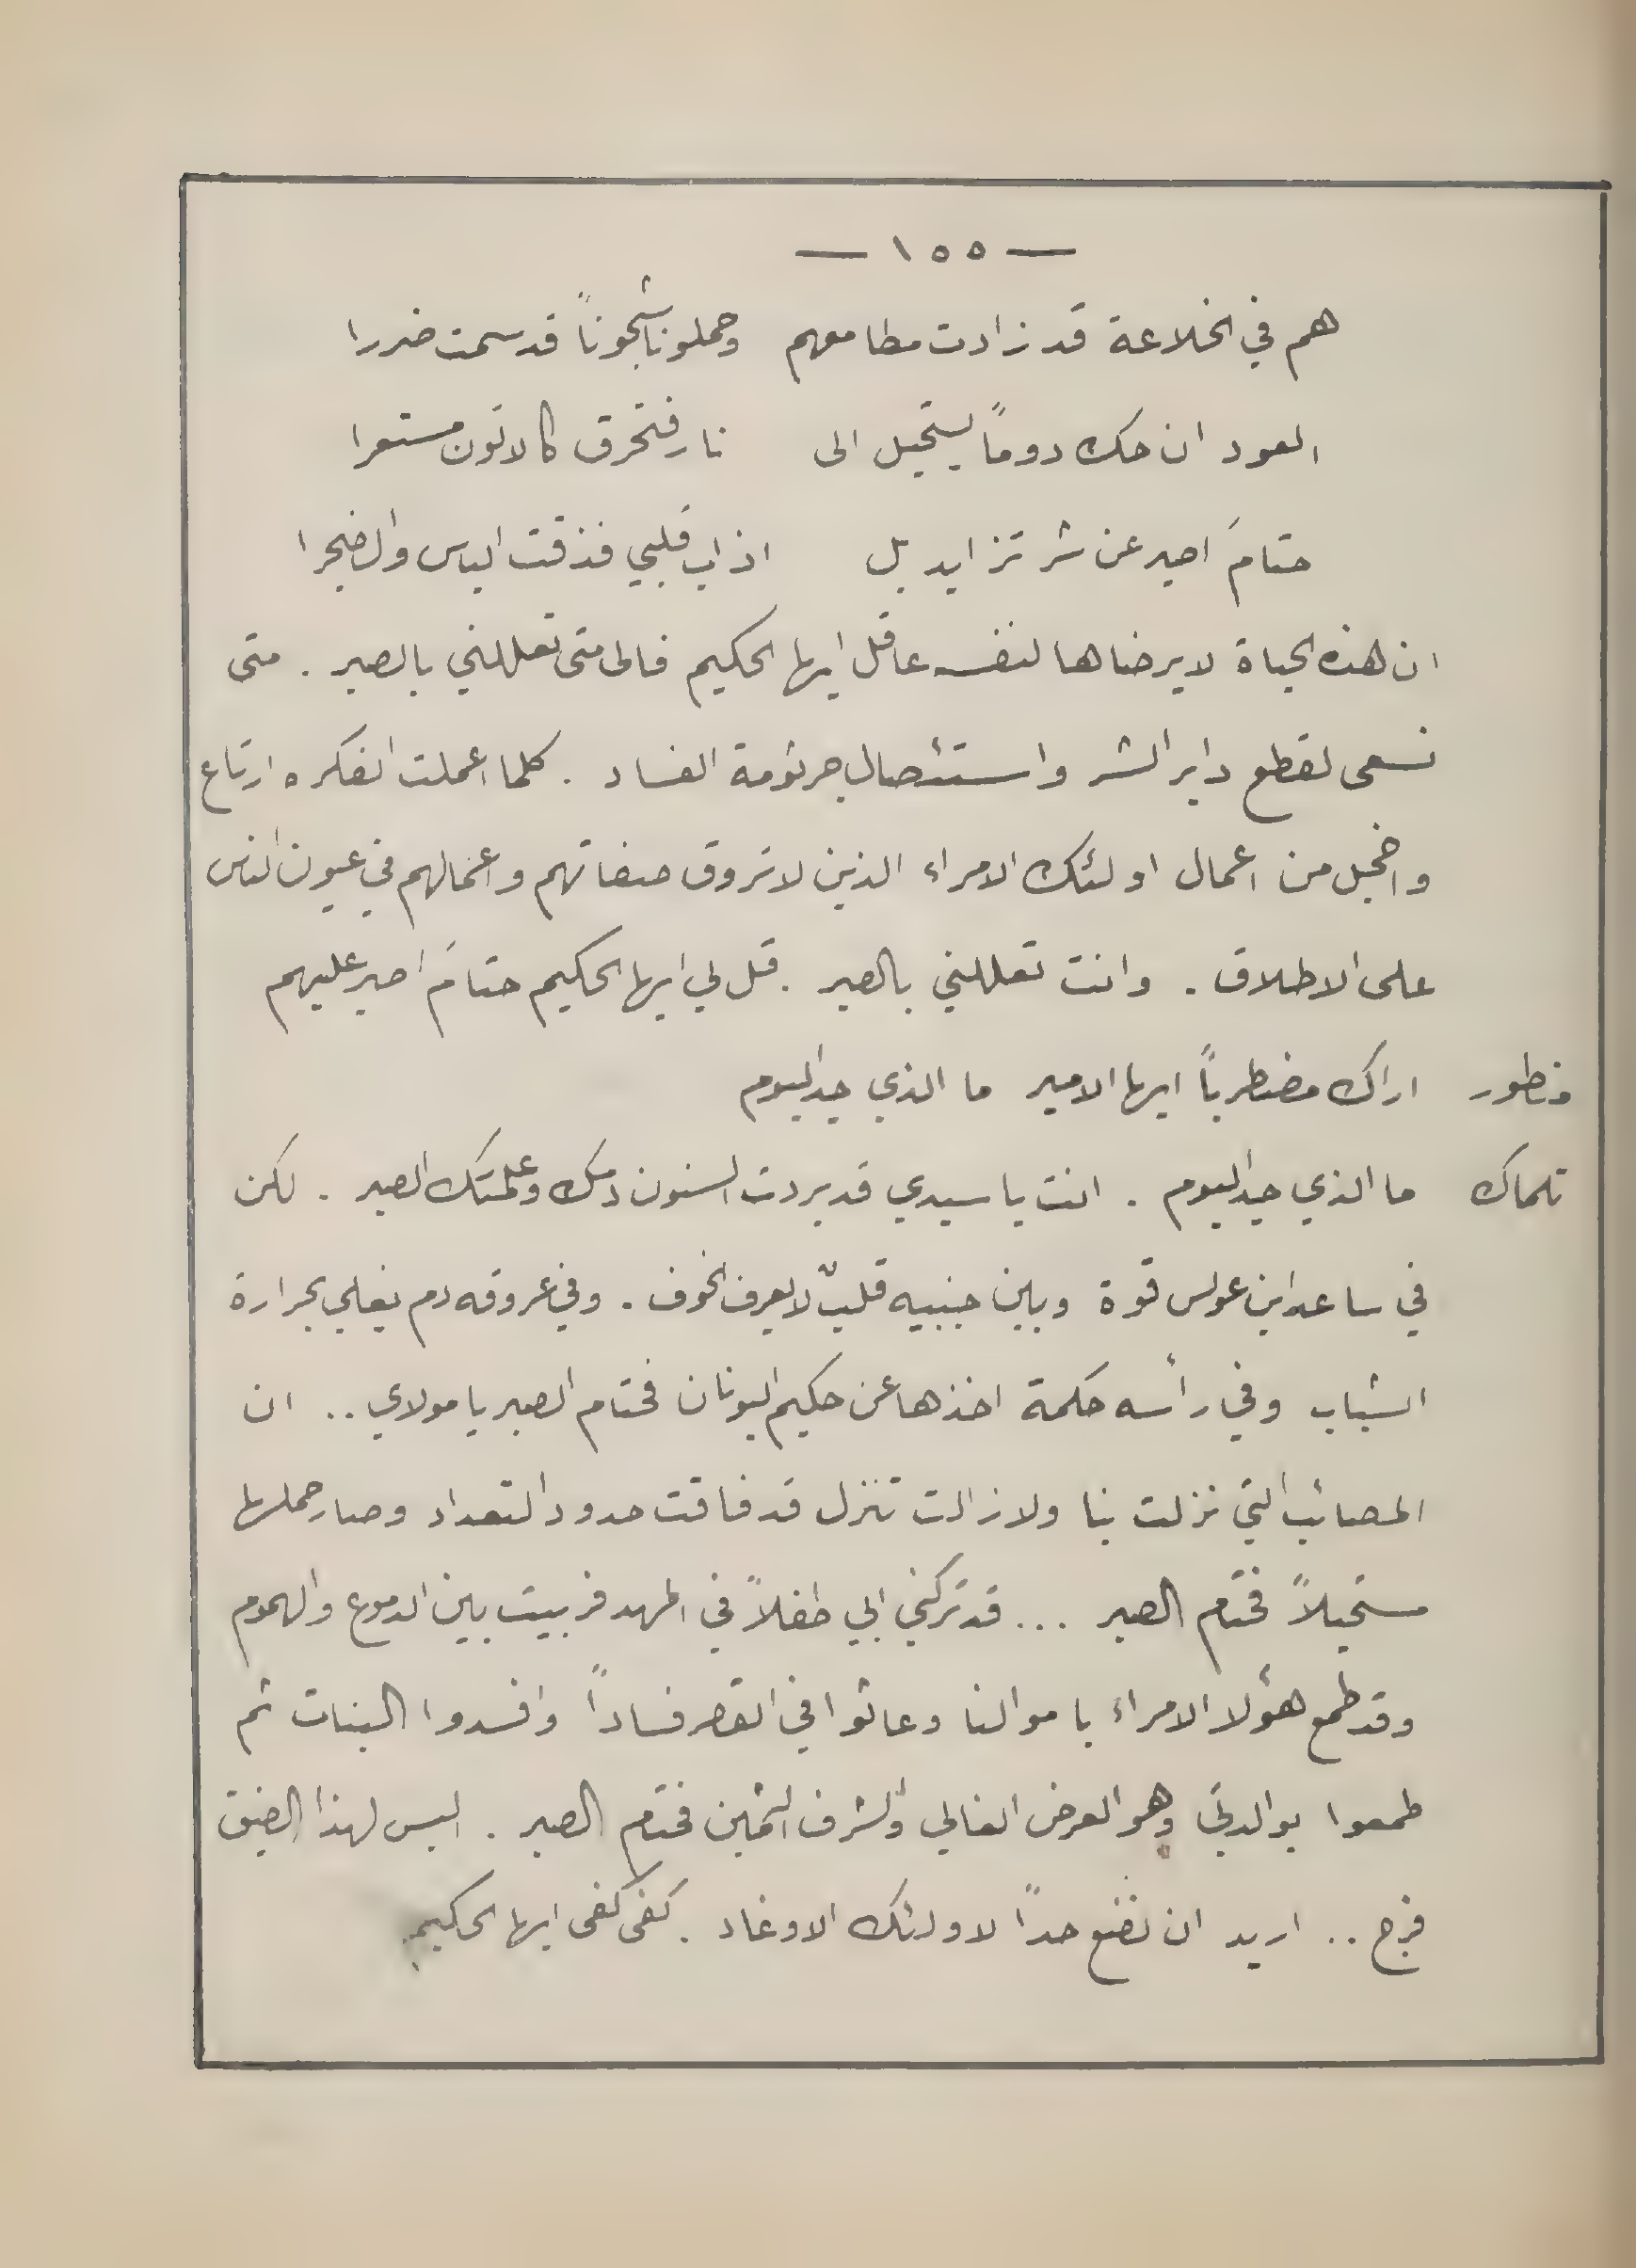 — ١٥٥ —
هم في الخلاعة قد زادت مطامعهم وحملونا شجوناً قد سمت ضررا
العود ان حك دوماً يستحيل الى نار فتحرق كالاتون مستعرا
حتامَ اصبر عن شر تزايد بل اذاب قلبي فذقت الياس والضجرا
ان هذه الحياة لا يرضاها لنفسه عاقل ايها الحكيم فالى متى تعللني بالصبر . متى
نسعى لقطع دابر الشر واستئصال جرثومة الفساد . كلما اعملت الفكره ارتاع
واخجل من اعمال اولئك الامراء الذين لا تروق صفاتهم واعمالهم في عيون الناس
على الاطلاق . وانت تعللني بالصبر . قل لي ايها الحكيم حتامَ اصبر عليهم
منطور اراك مضطرباً ايها الامير ما الذي جد اليوم
تلماك ما الذي جد اليوم . انت يا سيدي قد بردت السنون دمك وعلمتك الصبر . لكن
في ساعد ابن عولس قوة وبين جنبيه قلبٌ لا يعرف الخوف . وفي عروقه دم يغلي بحرارة
الشباب وفي رأسه حكمة اخذها عن حكيم اليونان فحتام الصبر يا مولاي .. ان
المصائب التي نزلت بنا ولا زالت تنزل قد فاقت حدود التعداد وصار حملها
مستحيلاً فحتام الصبر ... قد تركني ابي طفلاً في المهد فربيت بين الدموع والهموم
وقد طمع هؤلا الامراء باموالنا وعاثوا في القصر فساداً وافسدوا البنات ثم
طمعوا بوالدتي وهو العرض الغالي والشرف الثمين فحتام الصبر . اليس لهذا الضيق
فرج .. اريد ان نضع حداً لاولئك الاوغاد . كفى كفى ايها الحكيم